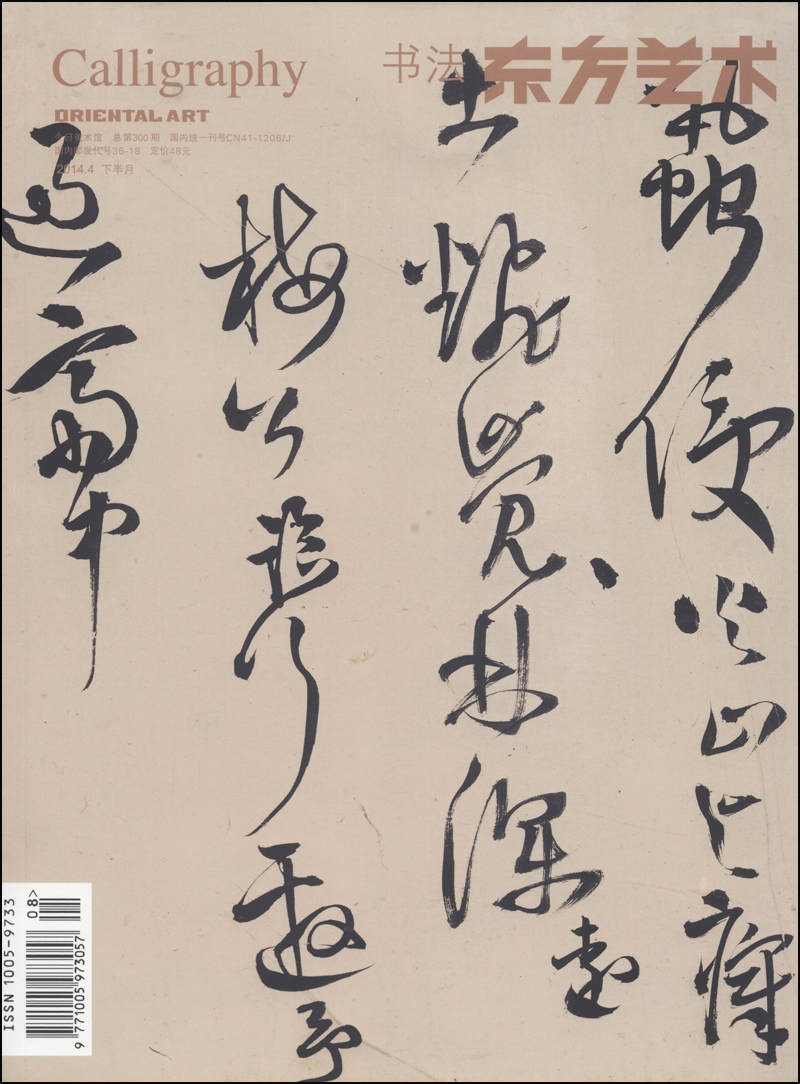 Calligraphy
书法 东方艺术
ORIENTAL ART
今日美术馆 总第300期 国内统一刊号CN41-1206/J
国内邮发代号36-18 定价48元
2014.4 下半月
便 山上
林深遠
梅公 行邀予
過齋中
ISSN 1005-9733
08>
9 771005 973057